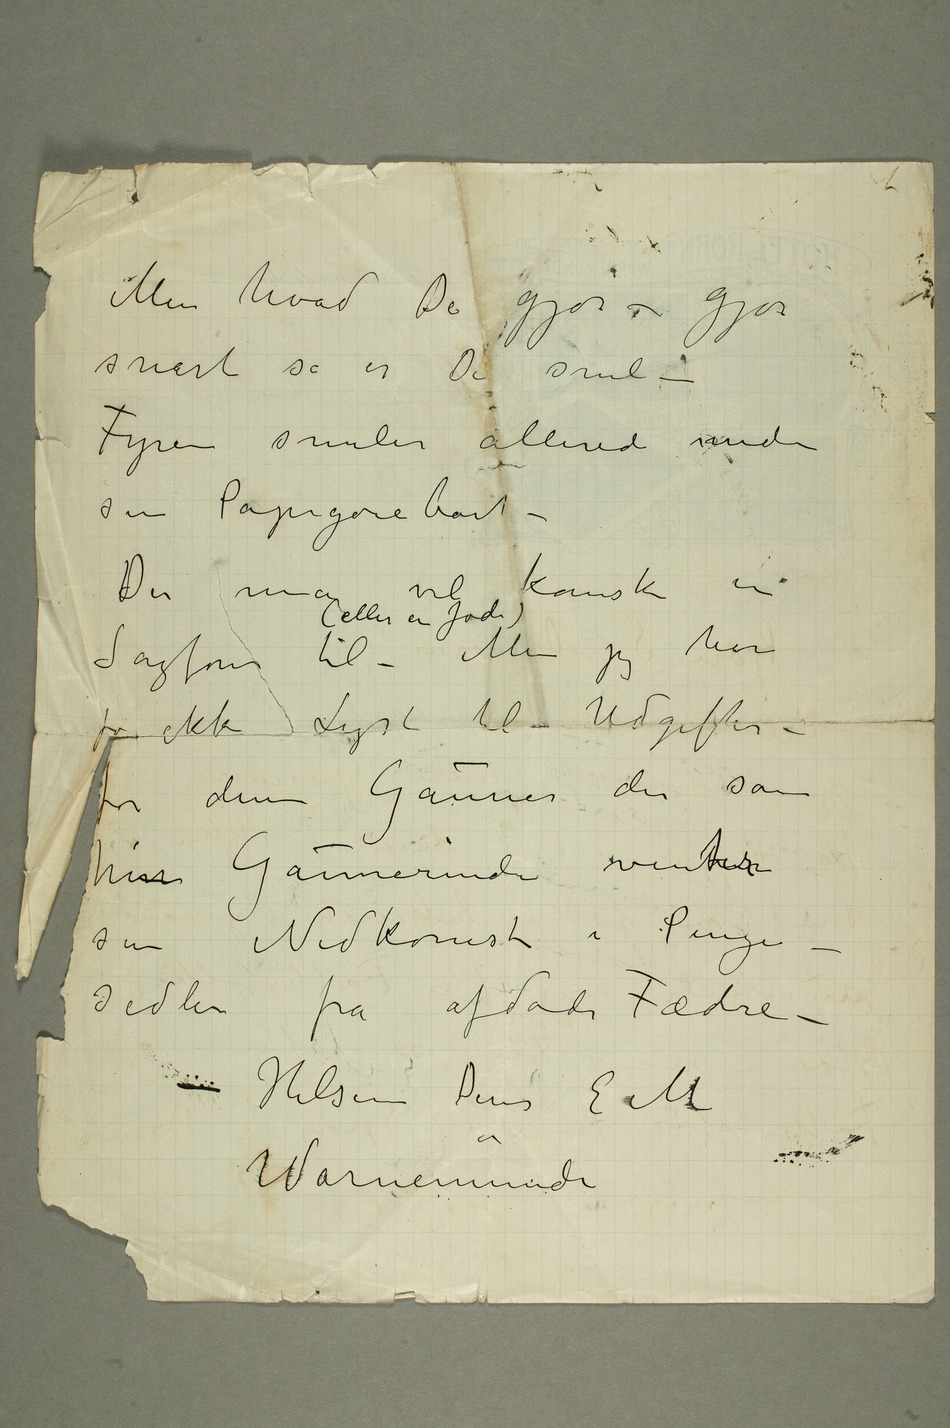 Men hvad De gjør – gjør
snart så er De snil –
Fyren smiler allerede under
sin Papegøiebart –
Der må vel kanske en
(eller en Jøde)
Sagfører til – Men jeg har
jo ikke Lyst til Udgifter –
for denne Gauner der som
hin Gaunerinde venter
sin Nedkomst i Penge –
sedler fra afdøde Fædre –
– Hilsen Deres E M
Warnemünde